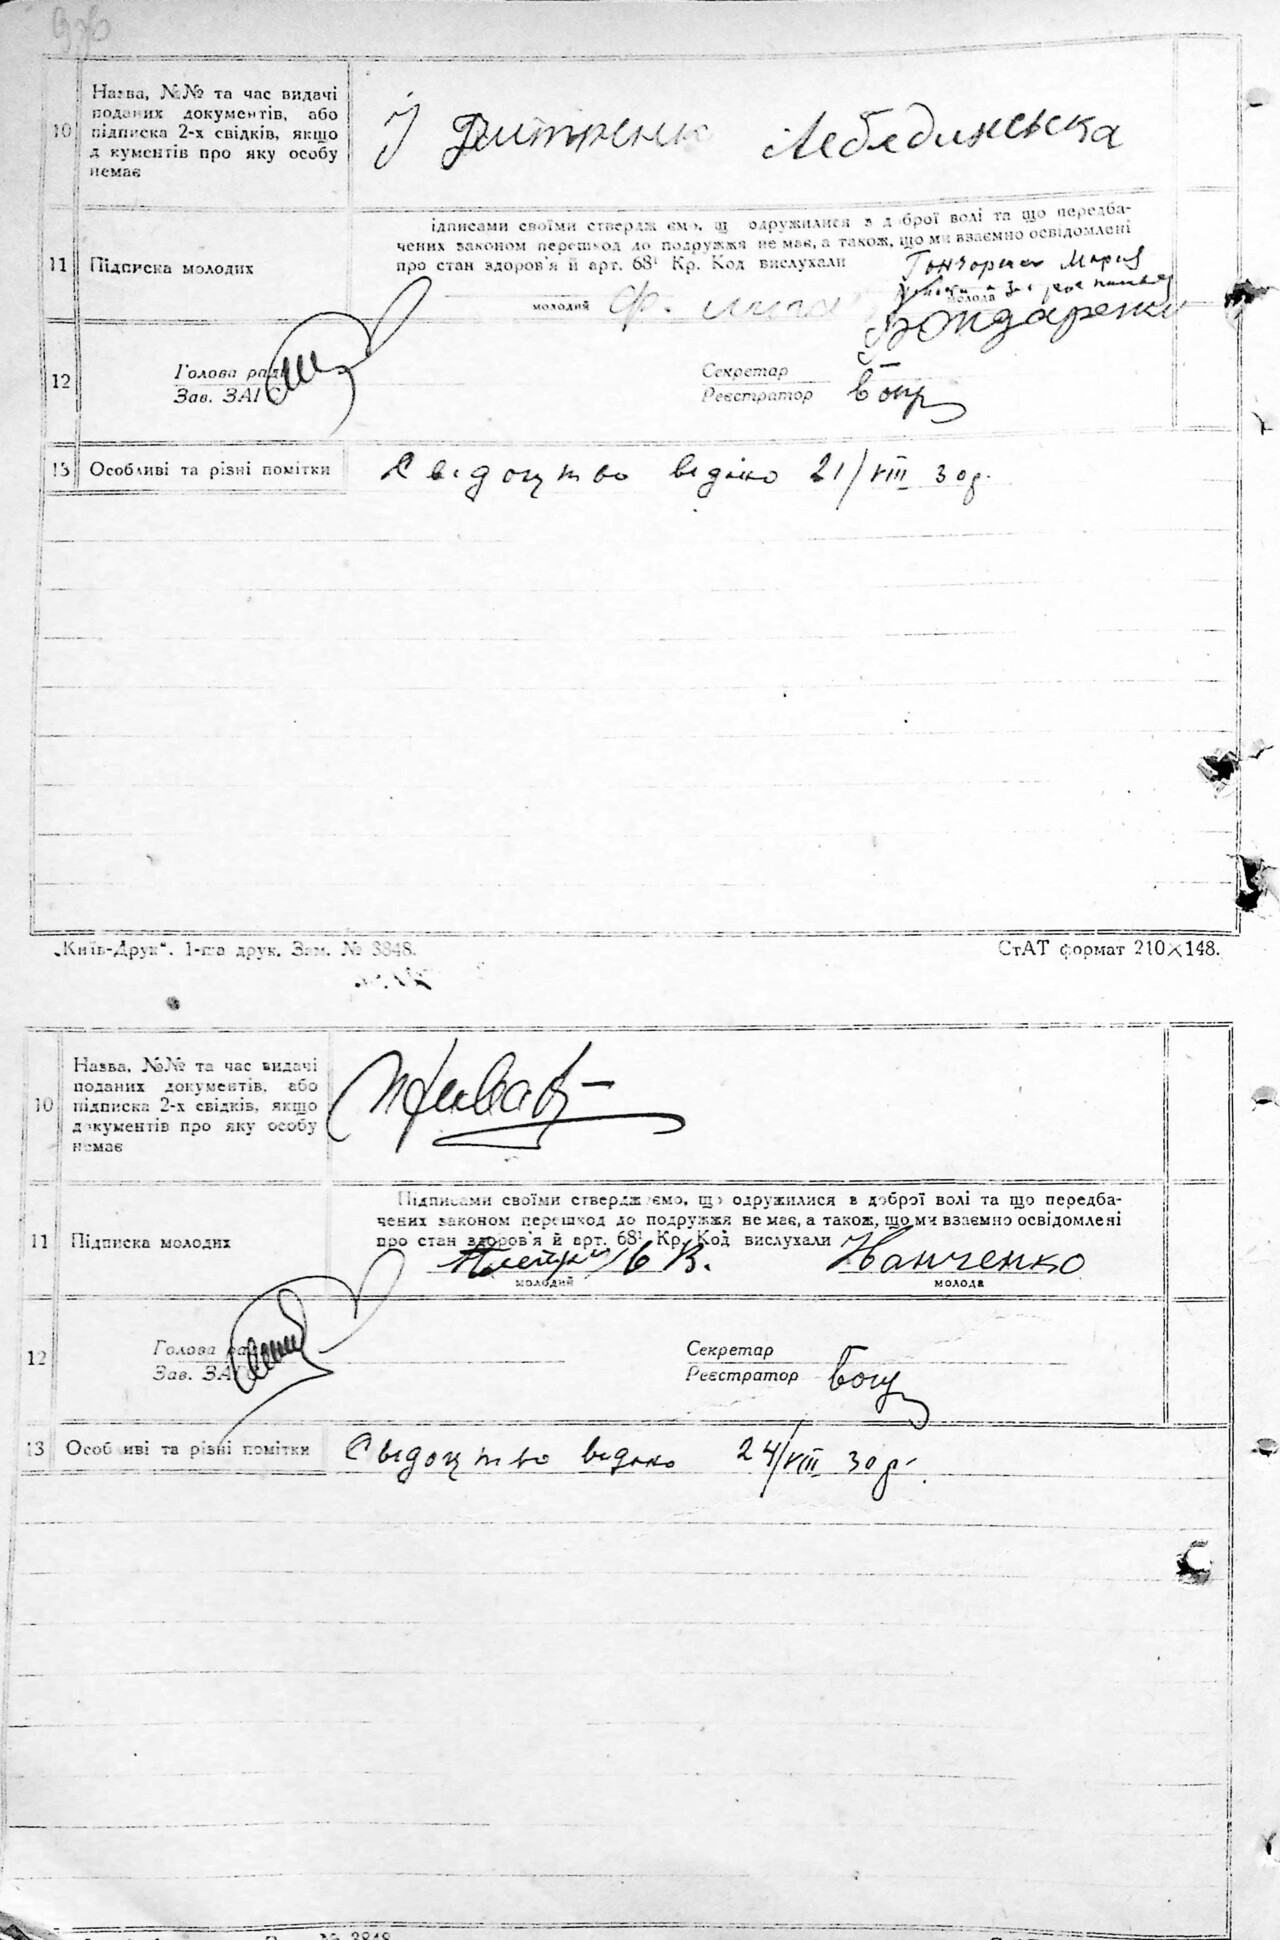 10 Назва, №№ та час видачі
поданих документів, або
підписка 2-х свідків, якщо
документів про яку особу
немає
Лебединська
ідписами своїми стверджуємо, що одружилися з доброї волі та що передба-
чених законом перешкод до подружжя не має, а також, що ми взаємно освідомлені
11 Підписка молодих про стан здоров'я й арт. 68¹ Кр. Код вислухали Гончаренко Мария
молодий молода
Бондаренко
12 Голова ради Секретар
Зав. ЗАГС Реєстратор
13 Особливі та різні помітки Свідоцтво відано 21/VIII 30 р.
„Київ-Друк“. 1-ша друк. Зам. № 3848. СтАТ формат 210×148.
10 Назва, №№ та час видачі
поданих документів, або
підписка 2-х свідків, якщо
документів про яку особу
немає
Підписами своїми стверджуємо, що одружилися з доброї волі та що передба-
чених законом перешкод до подружжя не має, а також, що ми взаємно освідомлені
11 Підписка молодих про стан здоров'я й арт. 68¹ Кр. Код вислухали
Иванченко
молодий молода
12 Голова ради Секретар
Зав. ЗАГС Реєстратор
13 Особливі та різні помітки Свідоцтво відано 24/VIII 30 р.
№ 3848